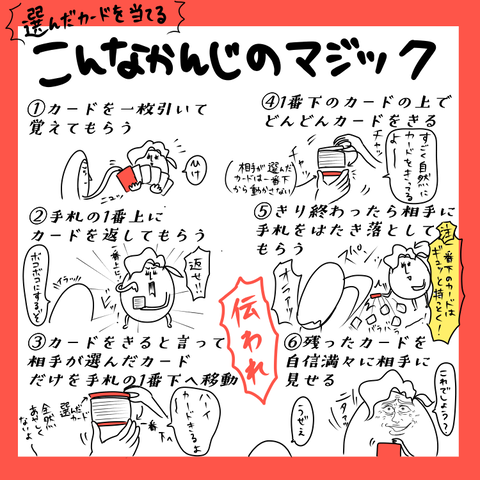 選んだカードを当てる
こんなかんじのマジック
①カードを一枚引いて
覚えてもらう
ひけ
ニュッ
②手札の1番上に
カードを返してもらう
一番上に
返せ!!
イラッ!!
ボコボコにするぞと
③カードをきると言って
相手が選んだカード
だけを手札の1番下へ移動
選んだ
カード
全然
あやしく
ないよ
一番下へ
ハイ
カードきるよー
④1番下のカードの上で
どんどんカードをきる
チャッ
チャッ
すごく自然に
カードをきってる
よー
相手が選んだ
カードは一番下
から動かさない
⑤きり終わったら相手に
手札をはたき落として
もらう
注
一番下のカードは
ギュッと持っとく!
スパ
オラアッ
バラバラ
伝われ
⑥残ったカードを
自信満々に相手に
見せる
これでしょう?
うぜえ